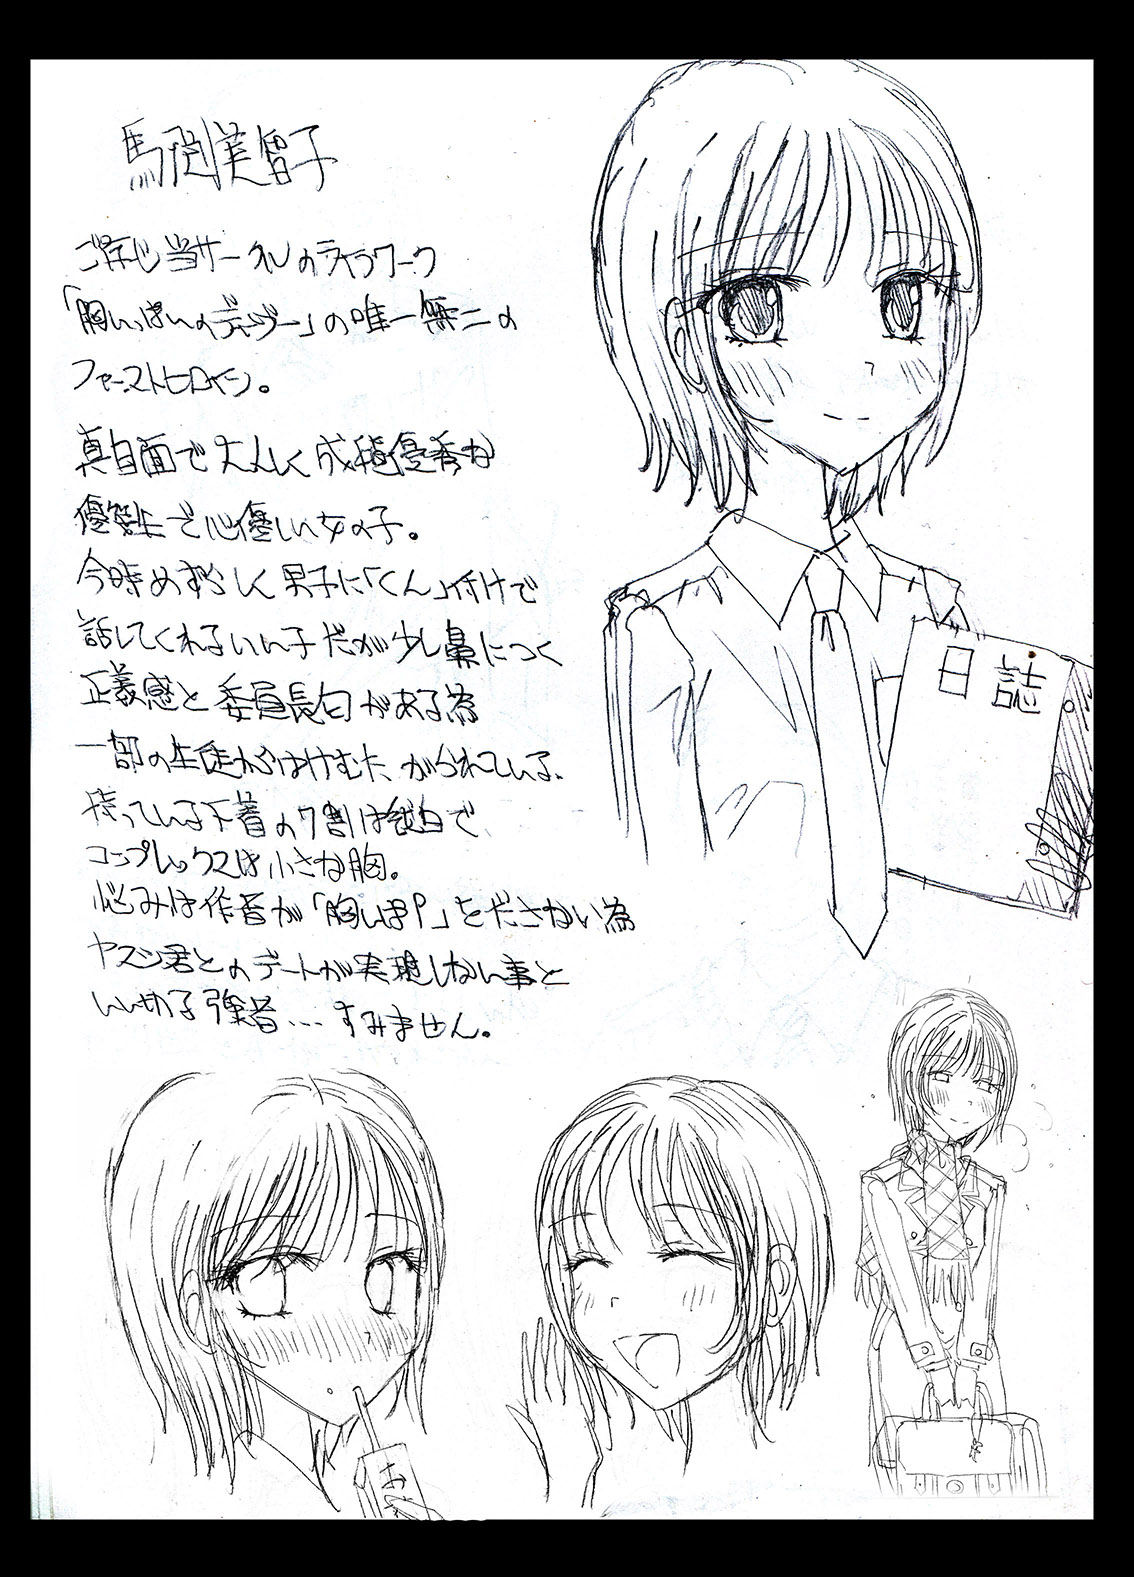 馬渕美智子
ご存じ当サークルのライフワーク
「胸いっぱいのディンジー」の唯一無二の
ファーストヒロイン。
真面目で大人しく成績優秀な
優等生で心優しい女の子。
今時めずらしく男子に「くん」付けで
話してくれるいい子だが少し鼻につく
正義感と委員長臼がある為
一部の生徒からはけむたがられている。
持っている下着の7割は純白で
コンプレックスは小さな胸。
悩みは作者が「胸いぱ」をださない為
ヤスシ君とのデートが実現しない事と
いい切る強者…すみません。
日誌
お